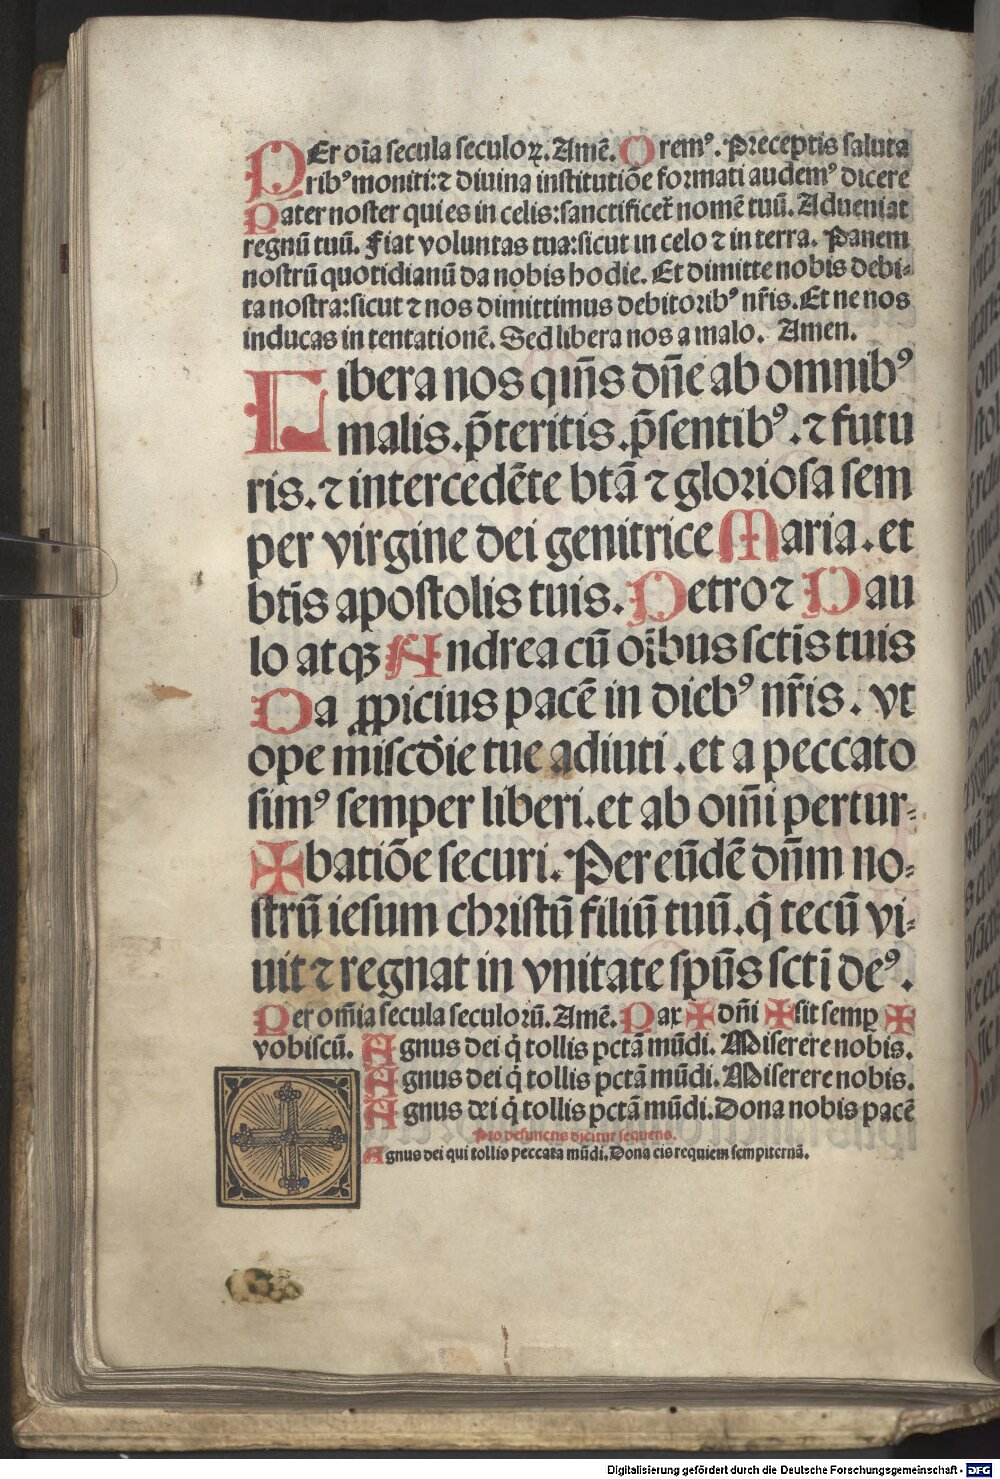 PEr oīa secula seculoꝝ. Amē. Oremꝰ. Preceptis saluta
ribꝰ moniti: ⁊ diuina institutiōe formati audemꝰ dicere
Pater noster qui es in celis: sanctificet̄ nomē tuū. Adueniat
regnū tuū. Fiat voluntas tua: sicut in celo ⁊ in terra. Panem
nostrū quotidianū da nobis hodie. Et dimitte nobis debi-
ta nostra: sicut ⁊ nos dimittimus debitoribꝰ nr̄is. Et ne nos
inducas in tentationē. Sed libera nos a malo. Amen.
Libera nos qūs dn̄e ab omnibꝰ
malis. p̄teritis. p̄sentibꝰ. ⁊ futu
ris. ⁊ intercedēte btā ⁊ gloriosa sem
per virgine dei genitrice Maria. et
btīs apostolis tuis. Petro ⁊ Pau
lo atqꝫ Andrea cū oībus sctīs tuis
Da ꝓpicius pacē in diebꝰ nr̄is. vt
ope miscd̄ie tue adiuti. et a peccato
simꝰ semper liberi. et ab oīni pertur-
✠ batiōe securi. Per eūdē dn̄m no-
strū iesum christū filiū tuū. q̄ tecū vi-
uit ⁊ regnat in vnitate spūs sctī deꝰ.
Per om̄ia secula seculorū. Amē. Pax ✠ dn̄i ✠ sit semꝑ ✠
vobiscū. Agnus dei q̄ tollis pctā mūdi. Miserere nobis.
Agnus dei q̄ tollis pctā mūdi. Miserere nobis.
Agnus dei q̄ tollis pctā mūdi. Dona nobis pacē
Pro defunctis dicitur sequens.
Agnus dei qui tollis peccata mūdi. Dona eis requiem sempiternā.
Digitalisierung gefördert durch die Deutsche Forschungsgemeinschaft - DFG